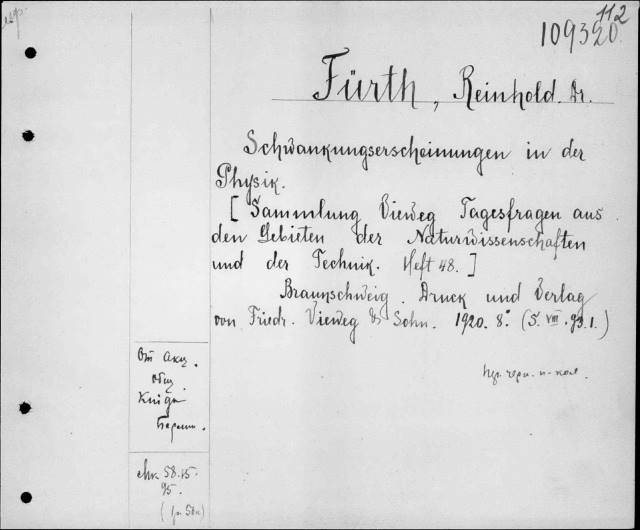 112
109320
Fürth, Reinhold. Dr.
Schwankungserscheinungen in der
Physik.
[ Sammlung Vieweg Tagesfragen aus
den Gebieten der Naturwissenschaften
und der Technik. Heft 48. ]
Braunschweig. Druck und Verlag
von Friedr. Vieweg & Sohn. 1920. 8° (S. VIII. 93. 1.)
От Акц.
Общ.
Книга
Берлин.
58.15.
95.